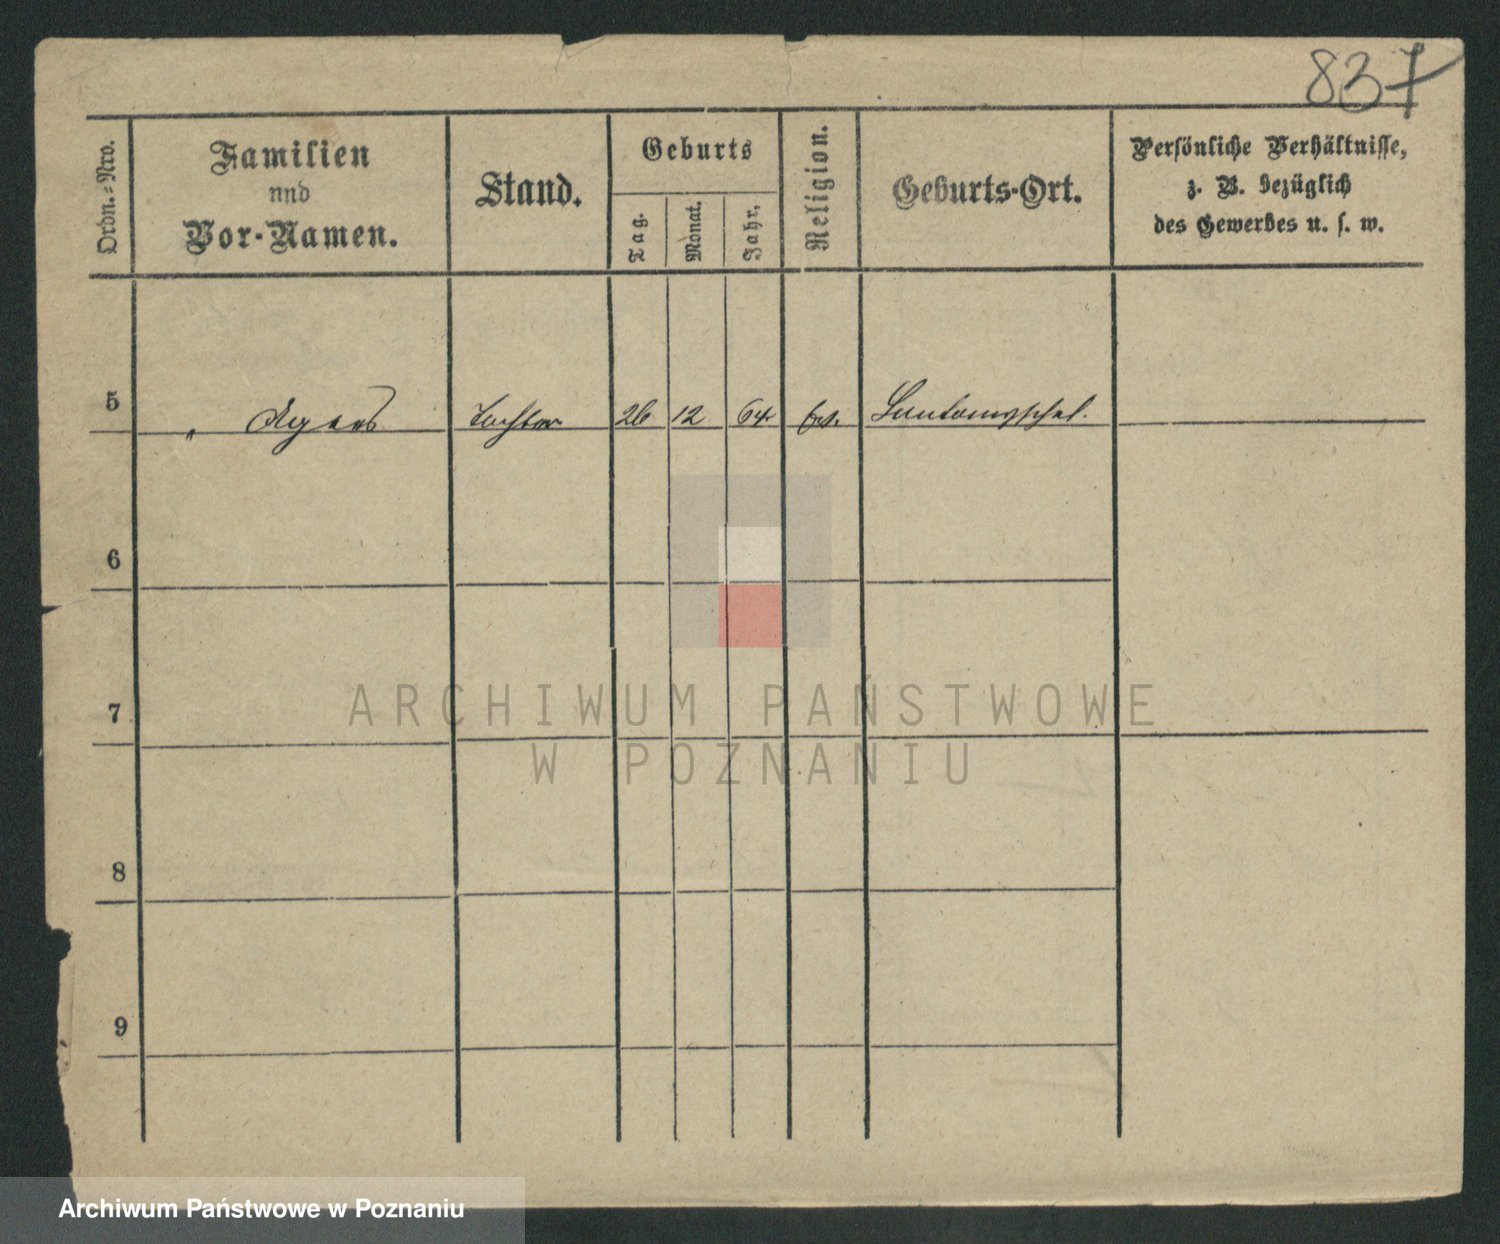 837
Ordn.=Nro.
Familien
und
Vor-Namen.
Stand.
Geburts
Tag.
Monat.
Jahr.
Religion.
Geburts-Ort.
Persönliche Verhältnisse,
z. B. bezüglich
des Gewerbes u. s. w.
5 " Agnes Tochter 26 12 64
6
7
8
9
ARCHIWUM PAŃSTWOWE
W POZNANIU
Archiwum Państwowe w Poznaniu